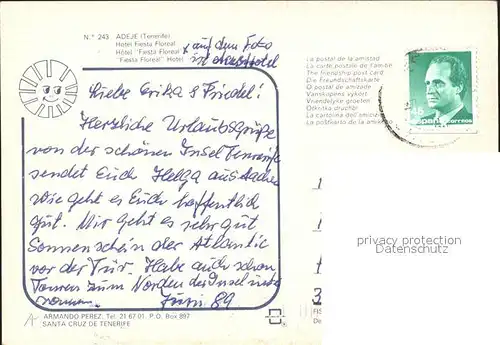 N.° 243 ADEJE (Tenerife)
Hotel Fiesta Floreal
Hôtel "Fiesta Floreal"
"Fiesta Floreal" Hotel
x auf dem Foto
ist
Hotel
Liebe Erika & Friedel!
Herzliche Urlaubsgrüße
von der schönen Insel Teneriffa
sendet Euch Helga aus Aachen
Wie geht es Euch hoffentlich
gut. Mir geht es sehr gut
Sonnenschein der Atlantic
vor der Tür. Habe auch schon
Touren zum Norden der Insel
Juni 89
La postal de la amistad
La carte postale de l'amitié
The friendship post card
Die Freundschaftskarte
O postal de amisade
Vanskapens vykort
Vriendelyke groeten
La cartolina dell'amicizia
La postkarto de la
españa correos
privacy protection
Datenschutz
ARMANDO PEREZ. Tel. 21 67 01. P.O. Box 897
SANTA CRUZ DE TENERIFE
FIS
De